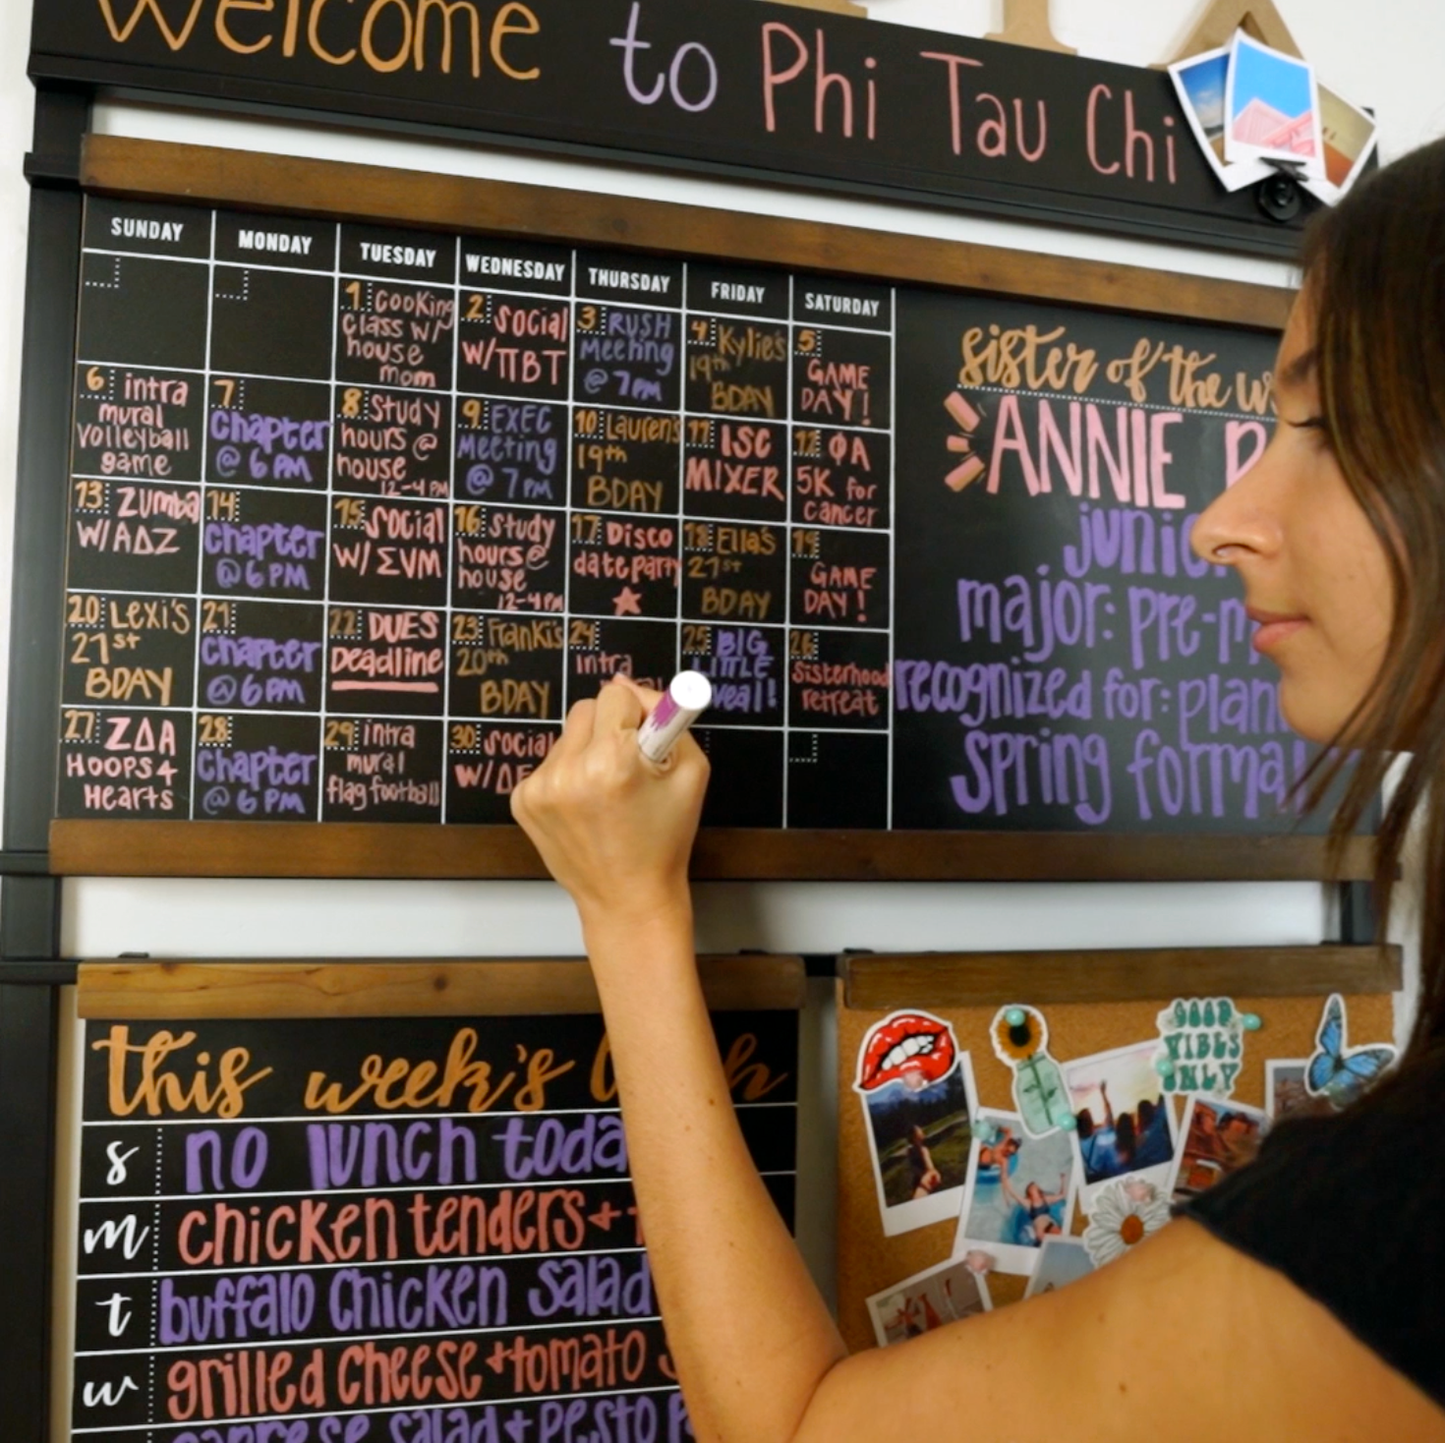 Welcome to Phi Tau Chi
SUNDAY MONDAY TUESDAY WEDNESDAY THURSDAY FRIDAY SATURDAY
1 cooking
class w/
house
mom
2 social
w/ΠBT
3 RUSH
Meeting
@ 7PM
4 Kylie's
19th
BDAY
5
GAME
DAY!
6 intra
mural
volleyball
game
7
chapter
@ 6 PM
8 study
hours @
house
12-4 PM
9 EXEC
Meeting
@ 7 PM
10 Lauren's
19th
BDAY
11 ISC
MIXER
12 ΦA
5K for
cancer
13 ZUMBA
W/AΔZ
14
chapter
@ 6 PM
15 social
W/ΣVM
16 study
hours @
house
12-4 PM
17 Disco
date party
18 Ella's
21st
BDAY
19
GAME
DAY!
20 Lexi's
21st
BDAY
21
chapter
@ 6 PM
22 DUES
Deadline
23 Franki's
20th
BDAY
24
intra
25 BIG
LITTLE
26
Sisterhood
retreat
27 ZΔA
HOOPS 4
Hearts
28
chapter
@ 6 PM
29 intra
mural
flag football
30 social
sister of the
ANNIE
major:
recognized for:
spring formal
this week's
s no lunch
m chicken tenders +
t buffalo chicken salad
w grilled cheese + tomato
salad + pesto
GOOD
VIBES
ONLY